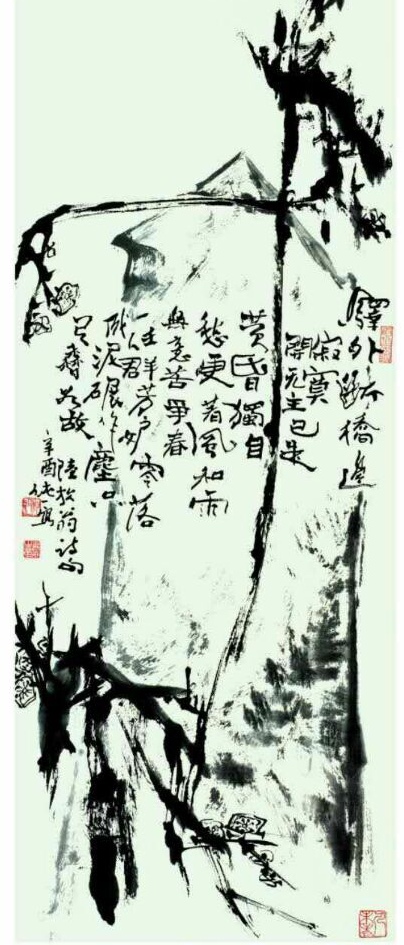 驛外斷橋邊
寂寞
開无主已是
黃昏獨自
愁更著風和雨
無意苦爭春
一任群芳妒零落
成泥碾作塵只
有香如故
陸放翁詩句
辛酉